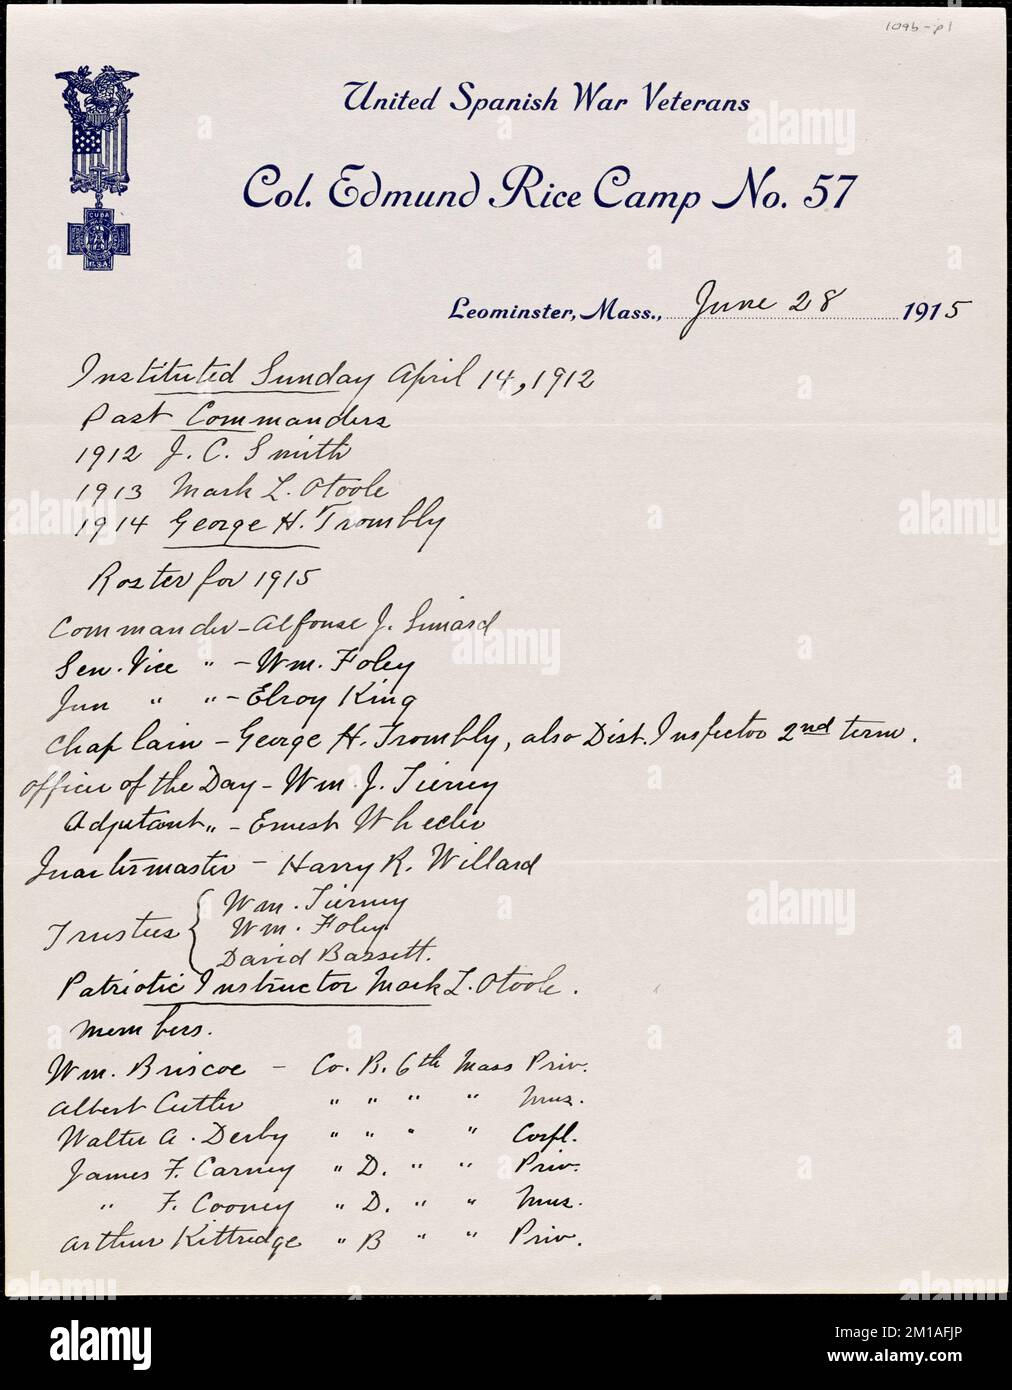 109b-p1
United Spanish War Veterans
Col. Edmund Rice Camp No. 57
CUBA
U.S.A.
Leominster, Mass., June 28 1915
Instituted Sunday April 14, 1912
Past Commanders
1912 J. C. Smith
1913 Mark L. Otoole
1914 George H. Trombly
Roster for 1915
Commander - Alfonse J. Simard
Sen. Vice " - Wm. Foley
Jun " " - Elroy King
Chaplain - George H. Trombly, also Dist. Inspector 2nd term.
Officer of the Day - Wm. J. Tierney
Adjutant " - Ernest Wheeler
Quartermaster - Harry R. Willard
Trustees { Wm. Tierney
Wm. Foley
David Bassett.
Patriotic Instructor Mark L. Otoole.
Members.
Wm. Briscoe - Co. B. 6th Mass Priv.
Albert Cutler " " " " Mus.
Walter A. Derby " " " " Corpl.
James F. Carney " D. " " Priv.
" F. Cooney " D. " " Mus.
Arthur Kittredge " B " " Priv.
alamy
Image ID: 2M1AFJP
www.alamy.com